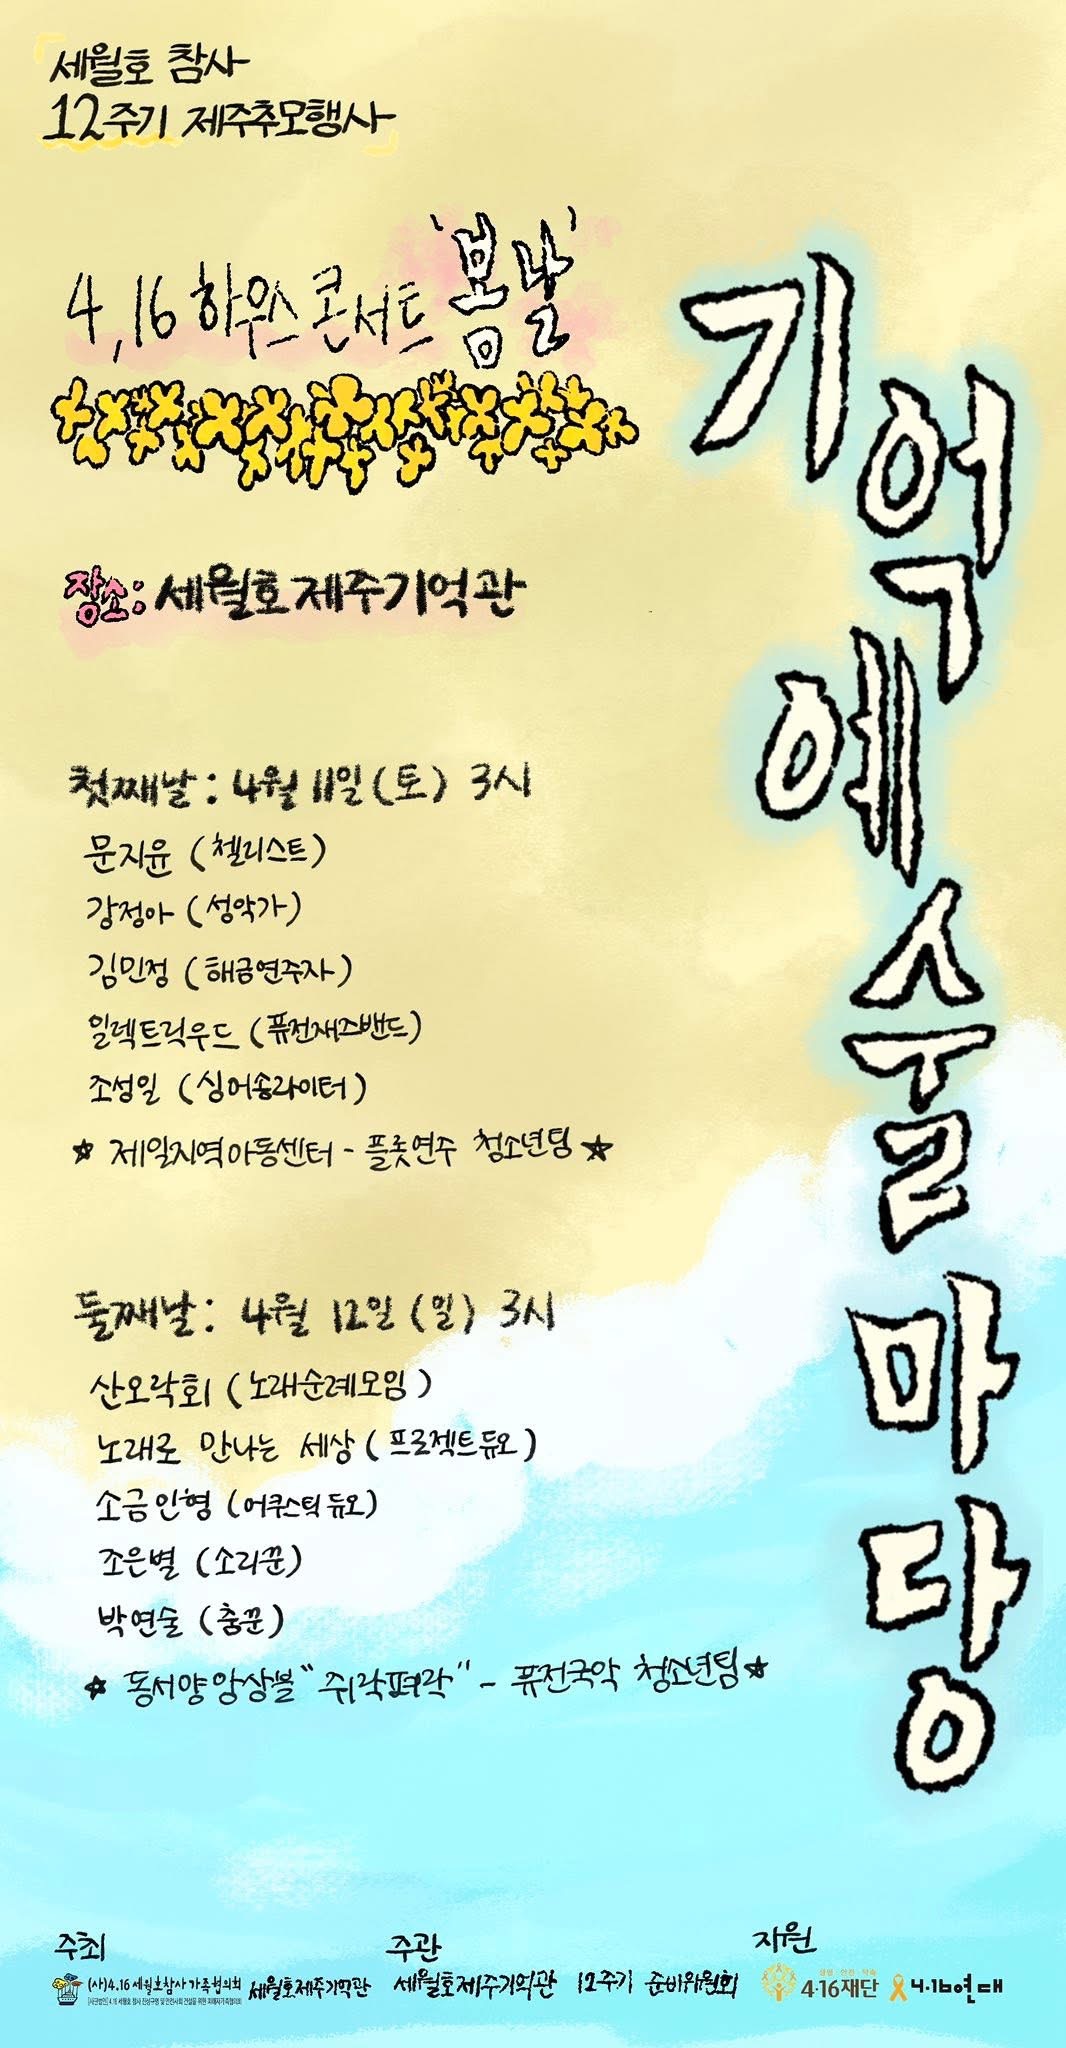 「세월호 참사
12주기 제주추모행사」
4.16 하우스 콘서트 '봄날'
기억예술마당
장소: 세월호제주기억관
첫째날 : 4월 11일 (토) 3시
문지윤 (첼리스트)
강정아 (성악가)
김민정 (해금연주자)
일렉트릭우드 (퓨전재즈밴드)
조성일 (싱어송라이터)
☆ 제일지역아동센터 - 플룻연주 청소년팀 ☆
둘째날 : 4월 12일 (일) 3시
산오락회 (노래순례모임)
노래로 만나는 세상 (프로젝트듀오)
소금인형 (어쿠스틱 듀오)
조은별 (소리꾼)
박연술 (춤꾼)
☆ 동서양앙상블 "쥐락펴락" - 퓨전국악 청소년팀 ☆
주최
(사)4.16 세월호참사 가족협의회
[사단법인] 4.16 세월호 참사 진상규명 및 안전사회 건설을 위한 피해자가족협의회
세월호제주기억관
주관
세월호제주기억관 12주기 준비위원회
지원
4·16재단
4·16연대